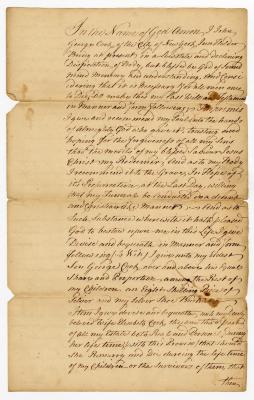 In the Name of God Amen. I John
George Cook, of the City of New York, Inn Holder
Being at present, in a
Disposition, of Body, but blessed be God of Sound
mind Memory and understanding, And Consi
dering that it is necessary for all men once
to Die, Do make this my Last Will and Testament
in Manner and form following
I give and recommend my Soul into the hands
of Almighty God who gave it, trusting and
hoping for the forgiveness of all my Sins
thro' the merits of my Blessed Saviour Jesus
Christ my Redeemer, And as to my Body
I recommend it to the Grave, in Hope of
its Resurrection, at the Last Day, willing
that my Funeral be conducted in a decent
and Christianlike Manner, and as to
Such Substance wherewith it hath pleased
God to bestow upon me in this Life, I give
Devise and bequeath in Manner and form
following; to Wit, I give unto my Eldest
Son George Cook, over and above his Equal
Share and Proportion among the Rest of
my Children an Eight Shilling Piece of
Silver and my Silver Shoe Buckles
Item I give devise and bequeath unto my truly
beloved Wife Elizabeth Cook, the use
of all my Estate both Real and Personal, During
her life time, with this Proviso, that should
She Remarry and Die during the life time
of my Children or the Survivors of them that
then